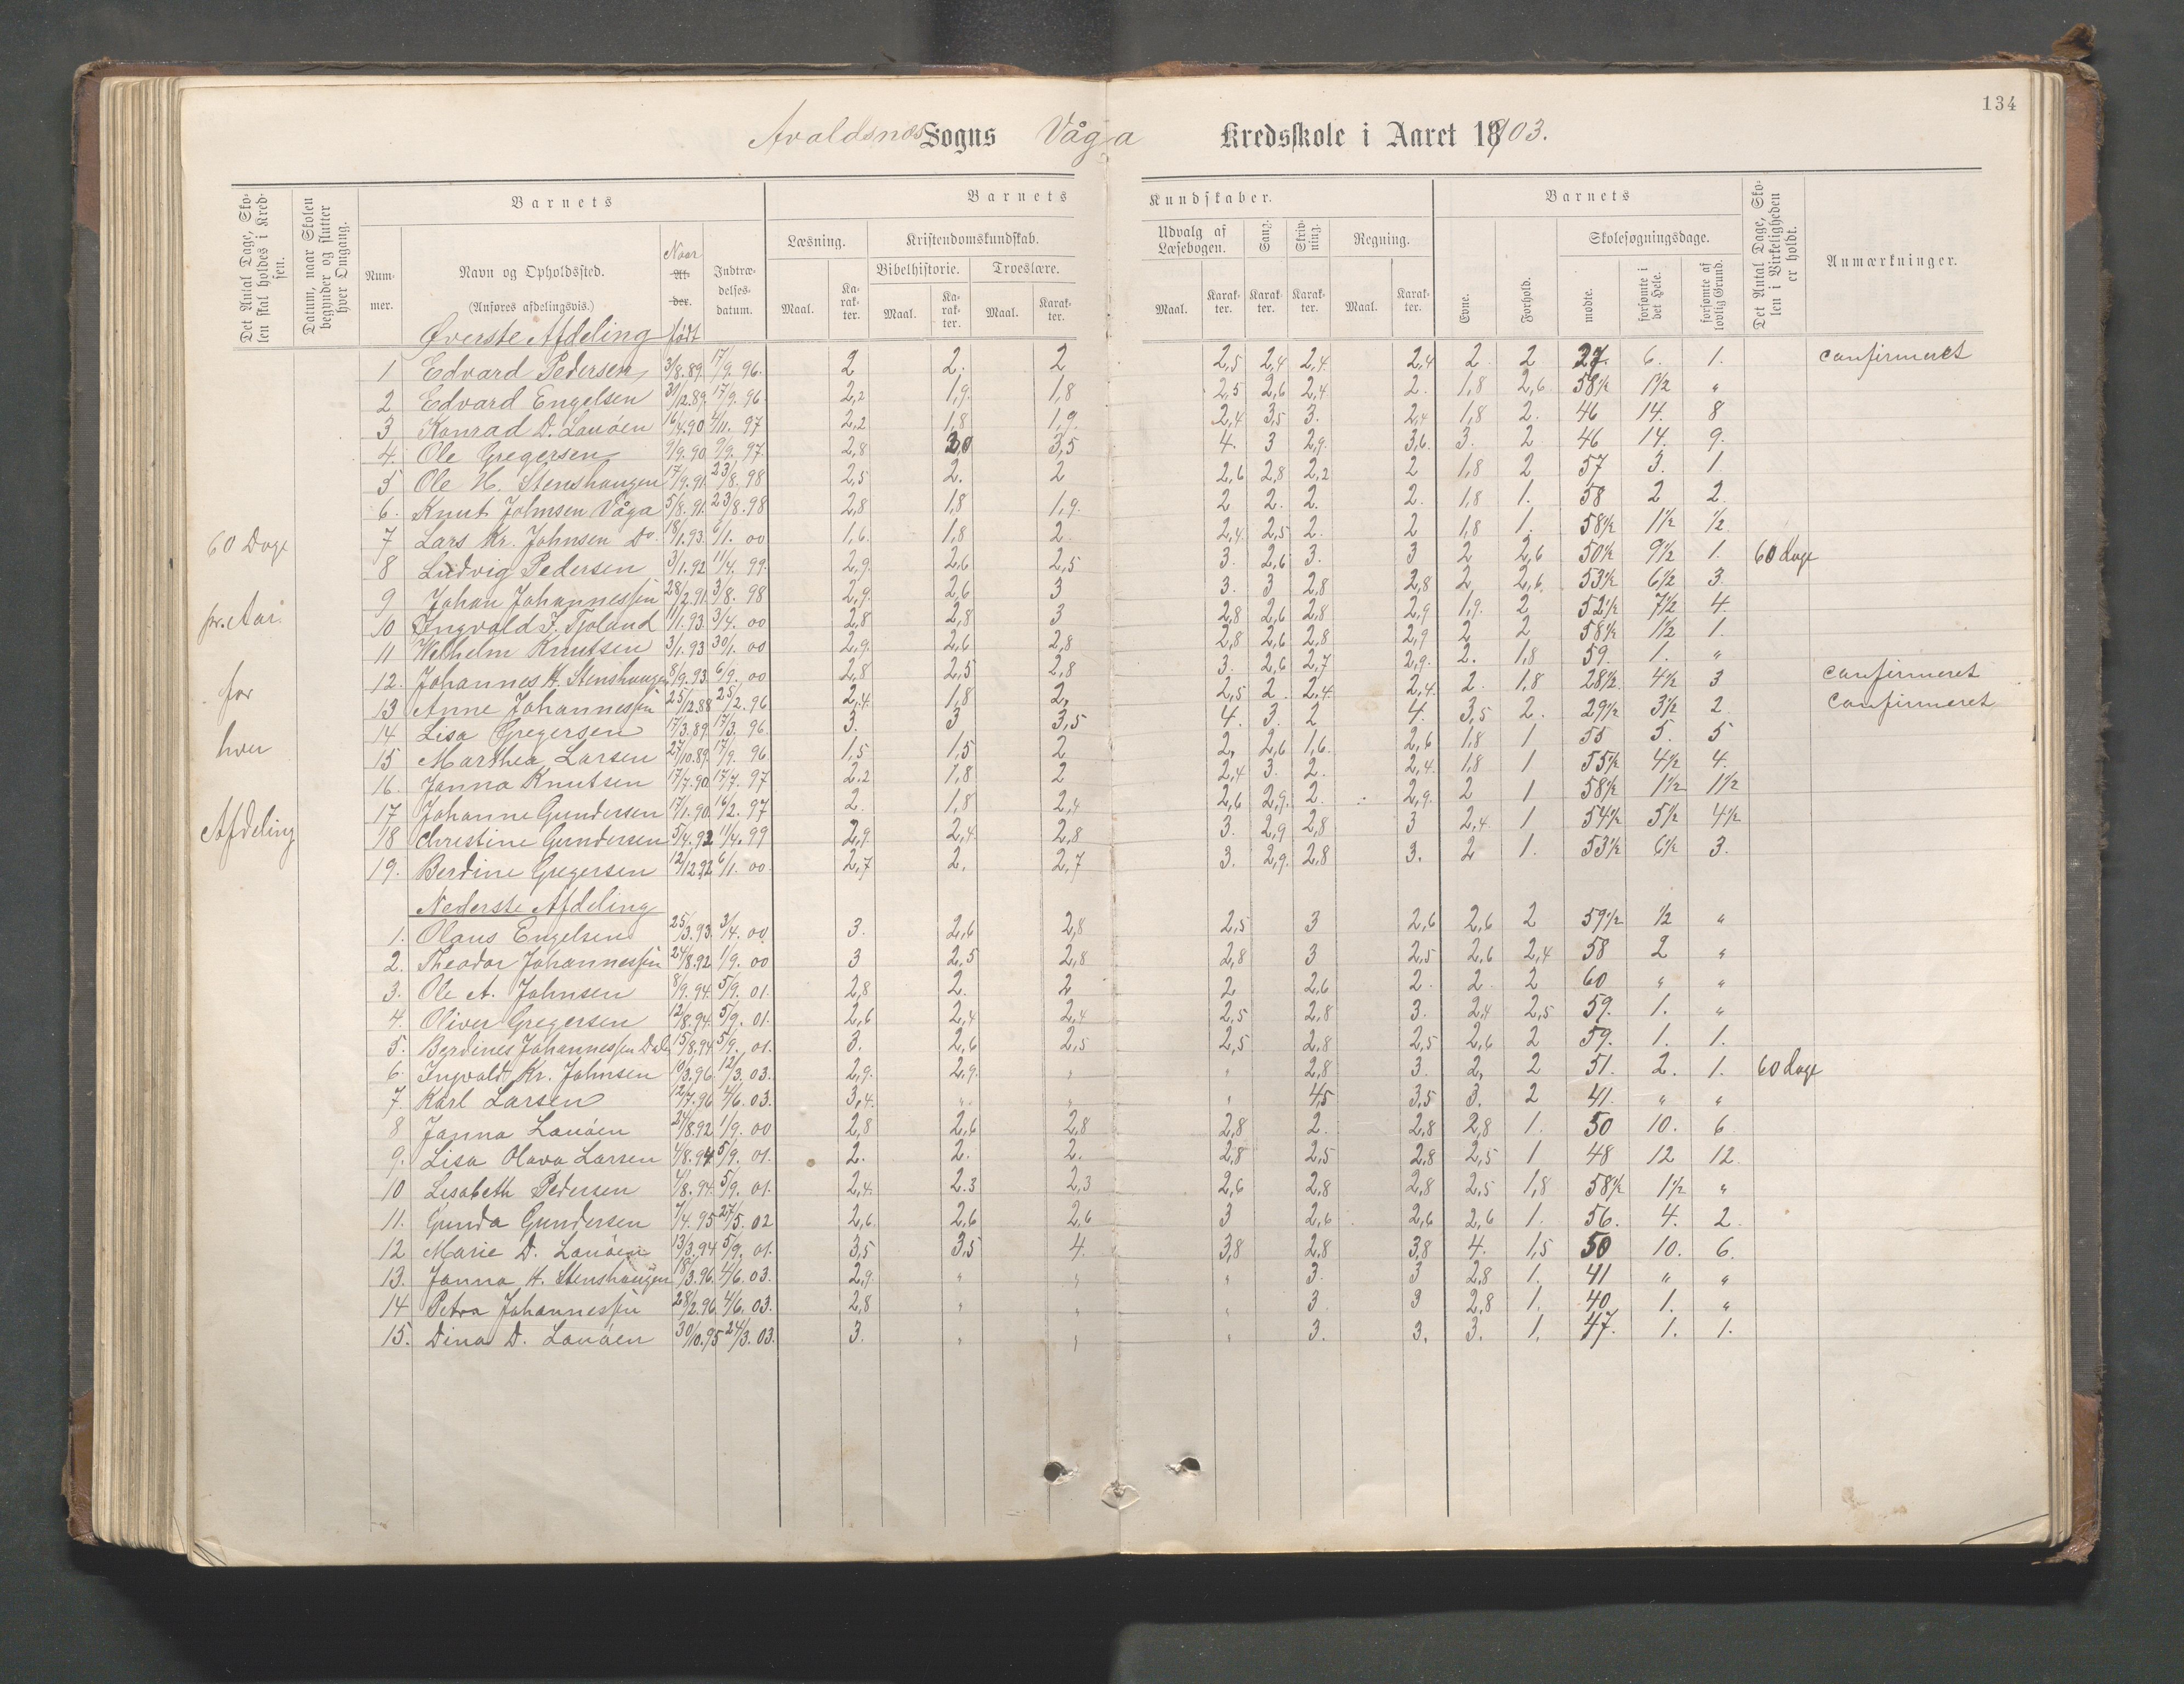 134
Avaldsnæs Sogns Våga Kredsskole i Aaret 18903.
Det Antal Dage, Skolen skal holdes i Kredsen.
Datum, naar Skolen begynder og slutter hver Omgang.
Barnets
Nummer.
Navn og Opholdssted.
(Anføres afdelingsvis.)
Naar født
Alder.
Indtrædelsesdatum.
Barnets Kundskaber.
Læsning.
Kristendomskundskab.
Bibelhistorie.
Troeslære.
Udvalg af Læsebogen.
Sang.
Skrivning.
Regning.
Maal.
Karakter.
Barnets
Evne.
Forhold.
Skolesøgningsdage.
mødte.
forsømte i det Hele.
forsømte af lovlig Grund.
Det Antal Dage, Skolen i Virkeligheden er holdt.
Anmærkninger.
60 Dage
pr. Aar
for
hver
Afdeling
Øverste Afdeling
1 Edvard Pedersen 3/8.89. 17/9. 96. 2 2. 2 2,5 2,4 2,4. 2,4 2. 2 27. 6. 1. confirmeret
2 Edvard Engelsen 30/12.89. 17/9. 96. 2,2 1,9. 1,8 2,5 2,6 2,4. 2. 1,8 2,6. 58½ 1½ "
3 Konrad D. Lauóen 16/4.90. 4/11. 97 2,2 1,8 1,9. 2,4 3,5 3. 2,4 1,8 2. 46 14. 8
4. Ole Gregersen 9/9. 90. 9/9. 97. 2,8 3,5 4. 3 2,9. 3,6. 3. 2 46 14. 9.
5 Ole H. Stenshaugen 17/9.91. 23/8. 98 2,5 2. 2 2,6 2,8 2,2 2 1,8 2 57 3. 1
6. Knut Johnsen Våga 5/8. 91. 23/8.98 2,8 1,8 1,9. 2 2. 2. 2. 1,8 1. 58 2 2.
7 Lars Kr. Johnsen Do. 18/1.93. 6/1. 00 1,6. 1,8 2. 2,4. 2,5 2. 2 1,8 1. 58½ 1½ ½
8 Ludvig Pedersen 3/1.92 11/4. 99. 2,9. 2,6 2,5 3. 2,6 3. 3 2 2,6 50½ 9½ 1. 60 dage
9 Johan Johannessen 28/2.91. 3/8. 98 2,9. 2,6 3 3. 3 2,8 2,8 2. 2,6. 53½ 6½ 3.
10 Ingvald J. Tjoland 11/1.93. 3/4. 00 2,8 2,8 3 2,8 2,6 2,8 2,9 1,9. 2 52½ 7½ 4.
11 Wilhelm Knutsen 3/1.93 30/1. 00 2,9. 2,6 2,8 2,8 2,6 2,8 2,9 2 2 58½ 1½ 1.
12. Johannes H. Stenshaugen 8/9.93. 6/9. 00 2,8 2,5 2,8 3. 2,6 2,7 2,9. 2. 1,8 59. 1. "
13 Anne Johannessen 25/12.88 25/2. 96 2,4. 1,8 2, 2,5 2 2,4. 2,4. 2. 1,8 28½ 4½ 3 confirmeret
14. Lisa Gregersen 17/3.89. 17/3. 96. 3. 3 3,5 4. 3. 2 4. 3,5 2. 29½ 3½ 2 confirmeret
15 Marthea Larsen 27/10.89. 17/9. 96 1,5 1,5 2 2, 2,6 1,6. 2,6 1,8 1 55 5. 5
16. Janna Knutsen 17/7.90 17/7. 97 2.2 1,8 2 2,4 3. 2. 2,4. 1,8 1 55½ 4½ 4.
17 Johanne Gundersen 17/1.90. 16/2. 97 2. 1,8 2,4 2,6 2,9. 2. 2,9. 2 1 58½ 1½ 1½
18 Christine Gundersen 5/4.92 11/4.99 2,9. 2,4 2,8 3. 2,9 2,8 3 2,4. 1 54½ 5½ 4½
19. Berdine Gregersen 12/12.92 6/1. 00. 2,7 2. 2,7 3. 2,9. 2,8 3. 2 1. 53½ 6½ 3.
Nederste Afdeling
1. Olaus Engelsen 25/3.93. 3/4. 00. 3. 2,6 2,8 2,5 3 2,6 2,6 2 59½ ½ "
2. Theodor Johannessen 24/8.92. 1/9. 00 3 2,5 2,8 2,8 3 2,5 2,6 2,4 58 2 "
3. Ole A. Johnsen 8/9. 94. 5/9. 01. 2,8 2. 2 2 2,6 2. 2. 2 60 " "
4. Oliver Gregersen 12/8.94. 5/9. 01. 2,6 2,4 2,4 2,5 2,8 3. 2,4 2,5 59. 1. "
5. Berdines Johannessen Dale 15/8.94 5/9. 01. 3. 2,6 2,5 2,5 2,8 2,5 2,6 2 59. 1. 1.
6. Ingvald Kr. Johnsen 10/3.96. 12/3. 03. 2,9. 2,9. " " 2,8 3. 2, 2 51. 2. 1. 60 dage
7. Karl Larsen 12/7.96 4/6. 03. 3,4. " " " 4,5 3,5 3. 2 41. " "
8 Janna Lauóen 24/8.92 1/9. 00 2,8 2,6 2,8 2,8 2. 2,8 2,8 1. 50 10. 6.
9. Lisa Olava Larsen 4/8.94 5/9. 01. 2. 2. 2. 2,8 2,5 2,8 2,5 1 48 12 12.
10 Lisabeth Pedersen 4/8.94. 5/9. 01. 2,4. 2.3 2,3 2,6 2,8 2,8 2,5 1,8 58½ 1½ "
11. Gunda Gundersen 7/4. 95 27/5. 02 2,6. 2,6 2,6 3 2,6 2,6 2,6 1. 56. 4. 2.
12 Marie D. Lauóen 13/3.94 5/9. 01. 3,5 3,5 4. 3,8 2,8 3,8 4. 1,5 50 10. 6.
13. Janna H. Stenshaugen 18/3.96. 4/6. 03. 2,9. " " " 3. 3 2,8 1. 41 " "
14 Petra Johannessen 28/2.96 4/6. 03. 2,8 " " " 3. 3 2,8 1. 40 1. "
15. Dina D. Lauóen 30/10.95 24/3. 03. 3. " " " 3. 3. 3. 1, 47. 1. 1.